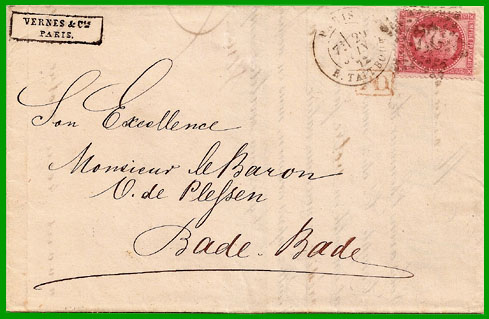 VERNES & Cie
PARIS.
PARIS
R. TAITBOUT
Son Excellence
Monsieur le Baron
O. de Plessen
Bade-Bade